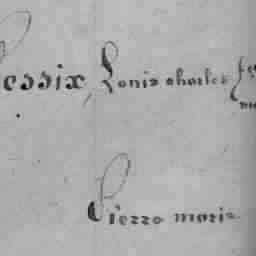 essix, Louis charles
Pierre marie